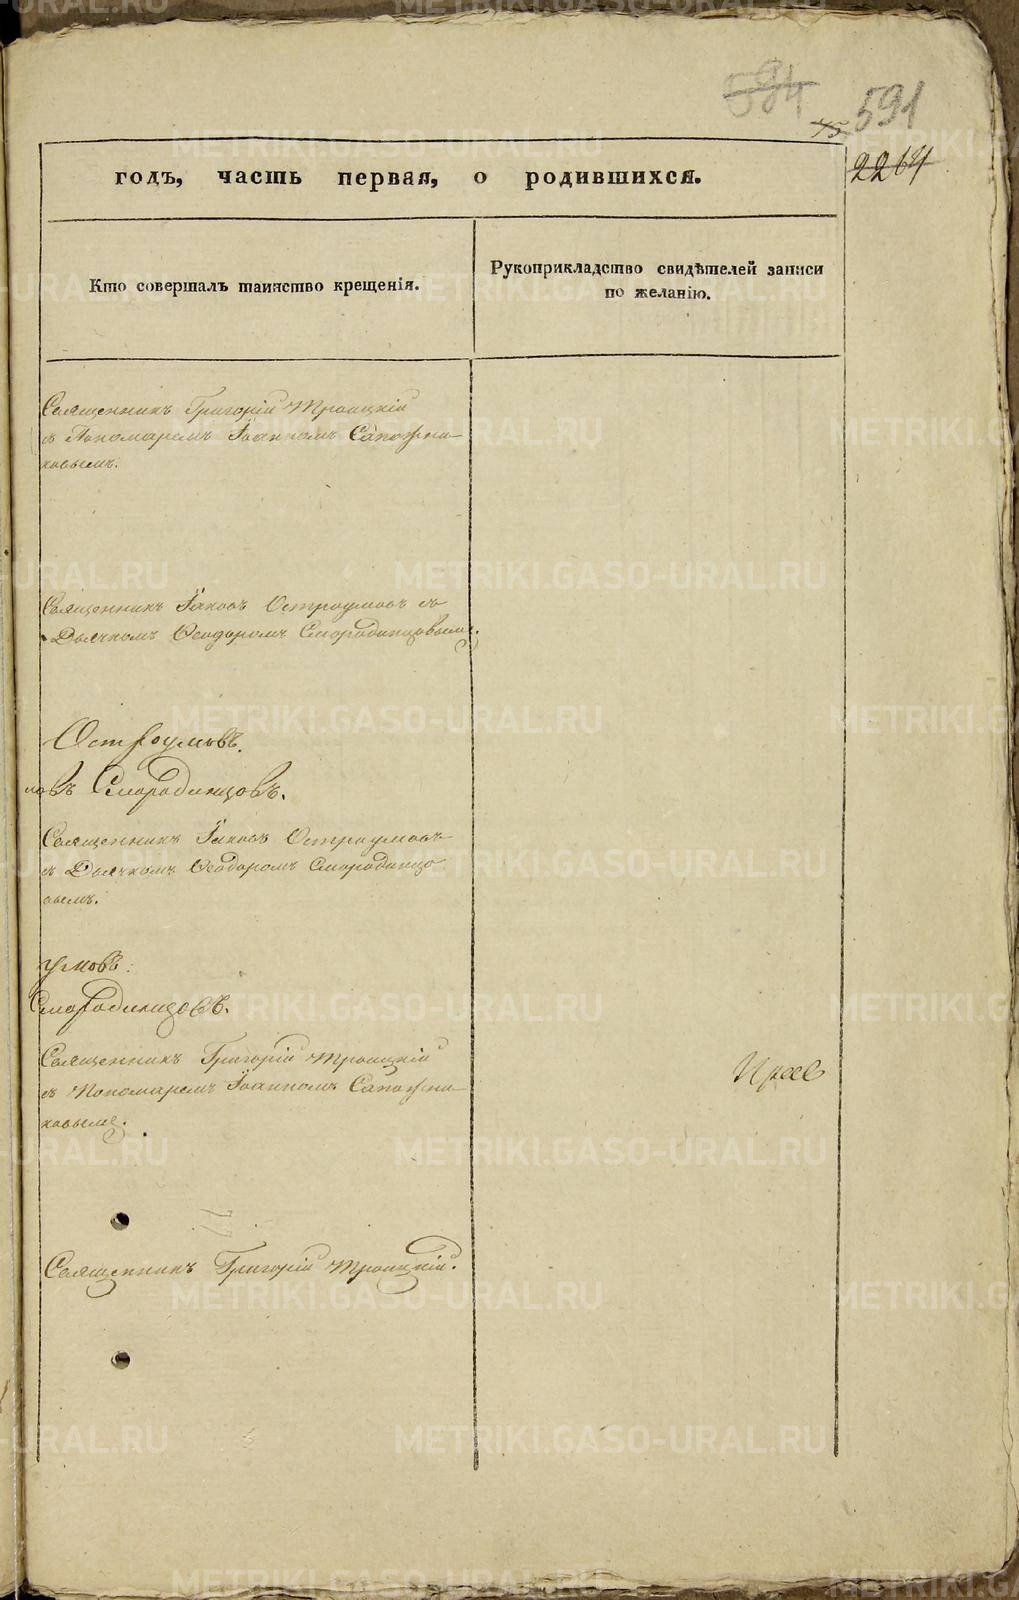 594
45 591
2264
годъ, часть первая, о родившихся.
Кто совершалъ таинство крещенія.
Рукоприкладство свидѣтелей записи
по желанію.
Священникъ Григорій Троицкій
съ Пономаремъ Іоанномъ Сапожни-
ковымъ.
Священникъ Іаковъ Остроумовъ съ
Дьячкомъ Ѳеодоромъ Смородинцовымъ.
Остроумовъ.
новъ Смородинцовъ.
Священникъ Іаковъ Остроумовъ
съ Дьячкомъ Ѳеодоромъ Смородинцо
вымъ.
умовъ.
Смородинцовъ.
Священникъ Григорій Троицкій
съ Пономаремъ Іоанномъ Сапожни-
ковымъ.
Священникъ Григорій Троицкій.
METRIKI.GASO-URAL.RU